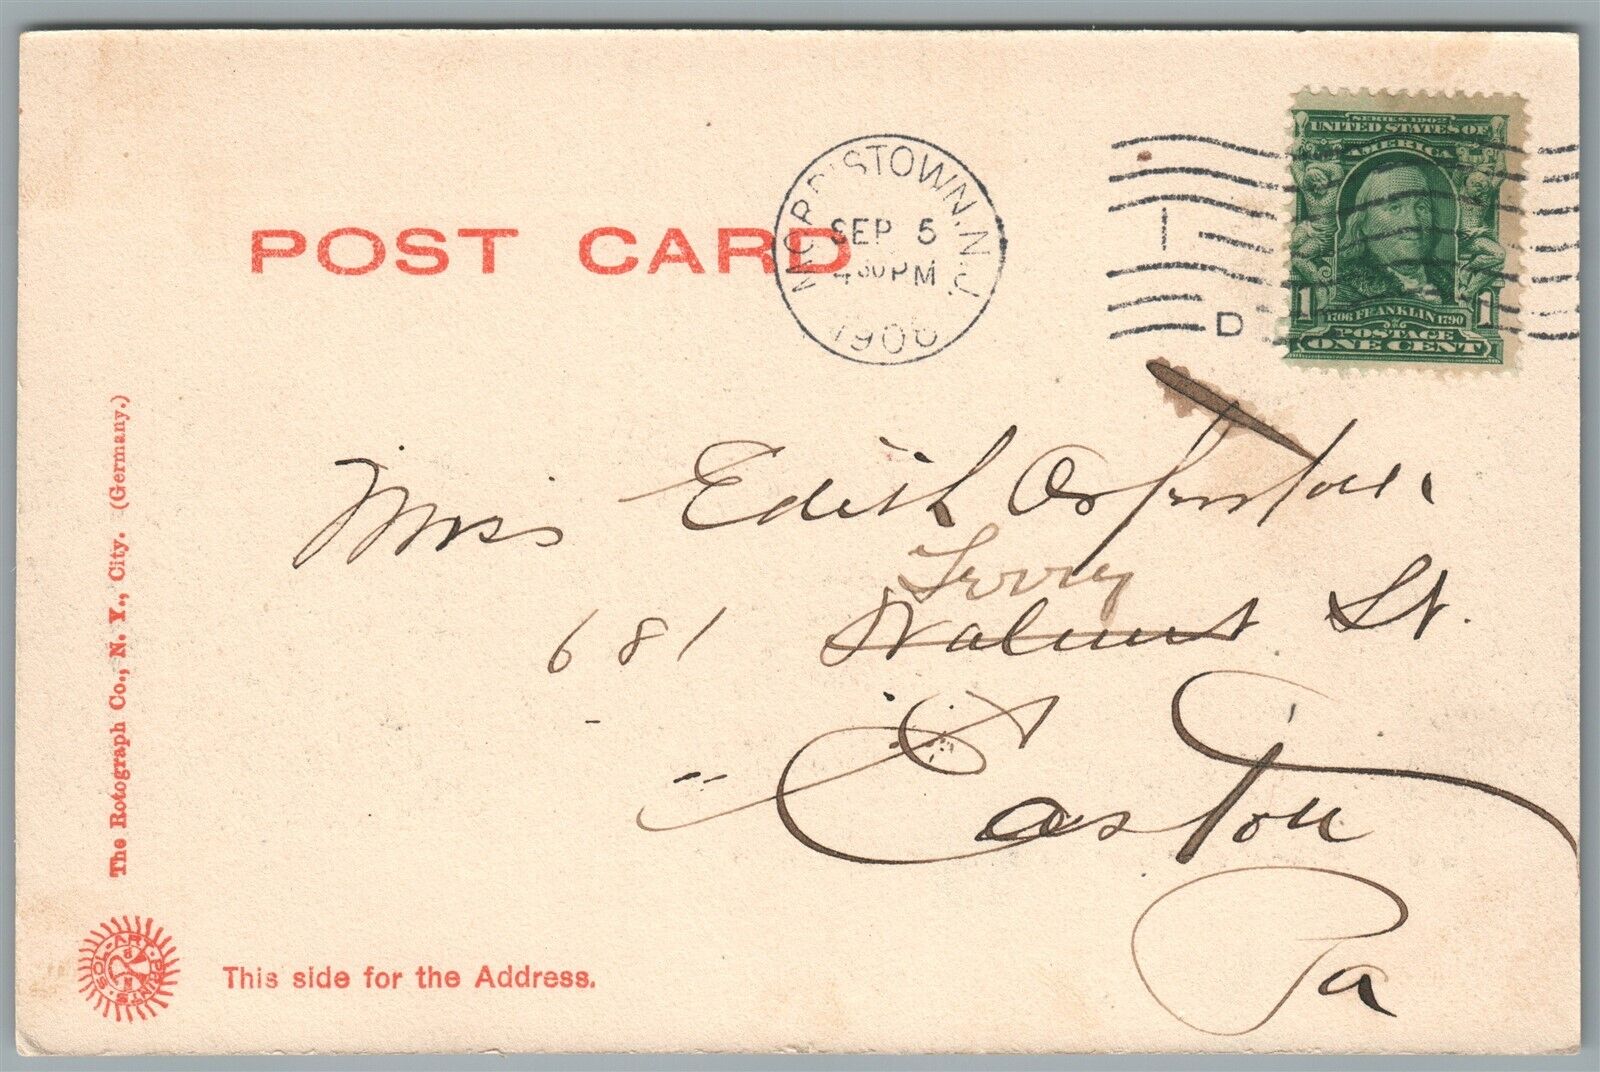 POST CARD
MORRISTOWN, N.J.
SEP 5
4 30 PM
1906
I
D
SERIES 1902
UNITED STATES OF
AMERICA
1 1
1706 FRANKLIN 1790
POSTAGE
ONE CENT
Miss Edith
Ferry
681 Walnut St.
Easton
Pa
The Rotograph Co., N. Y., City. (Germany.)
SOL-ART PRINTS
This side for the Address.